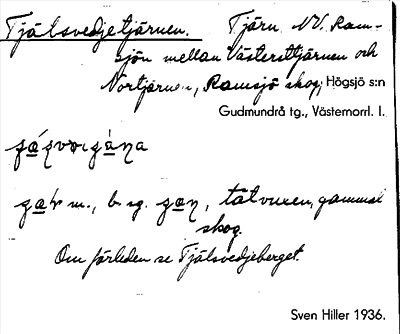 Tjälsvedjetjärnen. Tjärn NV. Ram-
sjön mellan Västersttjärnen och
Nörtjärnen, Ramsjö skog, Högsjö s:n
Gudmundrå tg., Västernorrl. l.
m., b. sg. tätvuxen, gammal
skog.
Om förleden se Tjälsvedjeberget.
Sven Hiller 1936.